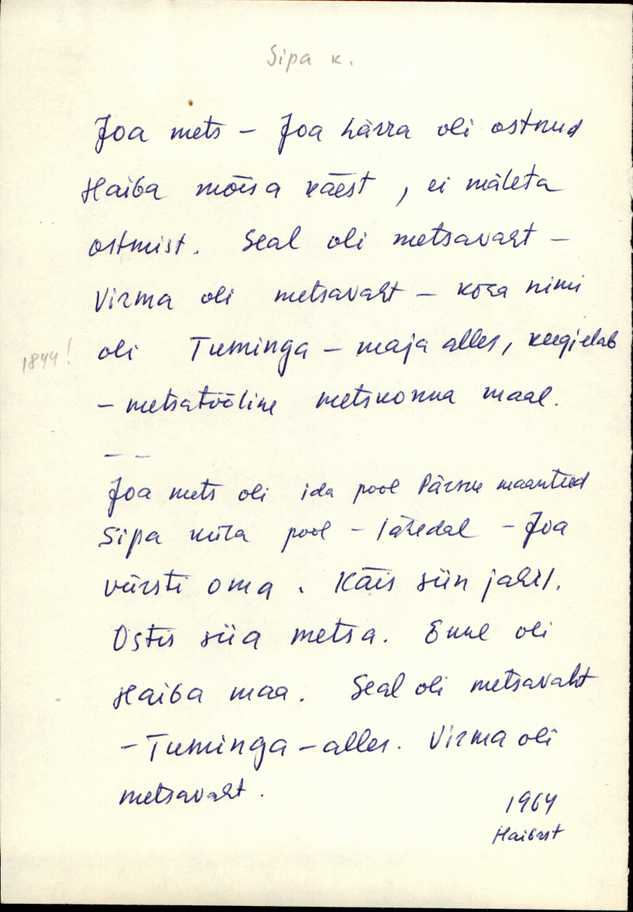 Sipa k.
Joa mets – Joa härra oli ostnud
Haiba mõisa käest, ei mäleta
ostmist. Seal oli metsavaht –
Virma oli metsavaht – koha nimi
1844! oli Tuminga – maja alles, keegi elab
– metsatööline metskonna maal.
– –
Joa mets oli ida pool Pärnu maanteed
Sipa küla pool – lähedal – Joa
vürsti oma. Käis siin jahil.
Ostis siia metsa. Enne oli
Haiba maa. Seal oli metsavaht
– Tuminga – alles. Virma oli
metsavaht.
1964
Haibast